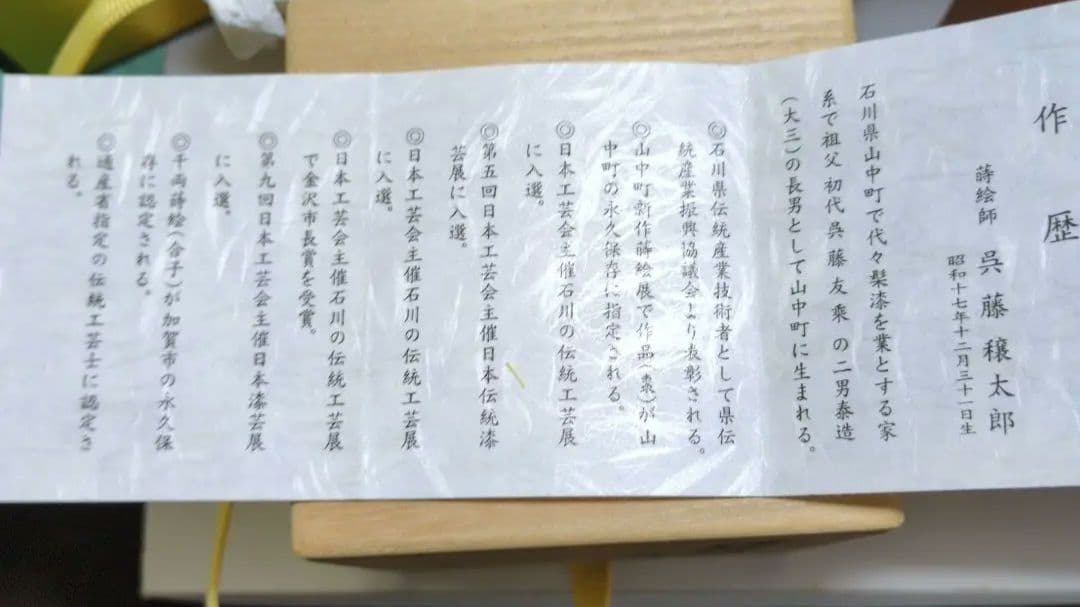 作歴
蒔絵師 呉藤穣太郎
昭和十七年十二月三十一日生
石川県山中町で代々髹漆を業とする家
系で祖父初代呉藤友乗の二男泰造
(大三)の長男として山中町に生まれる。
◎石川県伝統産業技術者として県伝
統産業振興協議会より表彰される。
◎山中町新作蒔絵展で作品(棗)が山
中町の永久保存に指定される。
◎日本工芸会主催石川の伝統工芸展
に入選。
◎第五回日本工芸会主催日本伝統漆
芸展に入選。
◎日本工芸会主催石川の伝統工芸展
に入選。
◎日本工芸会主催石川の伝統工芸展
で金沢市長賞を受賞。
◎第九回日本工芸会主催日本漆芸展
に入選。
◎千両蒔絵(合子)が加賀市の永久保
存に認定される。
◎通産省指定の伝統工芸士に認定さ
れる。